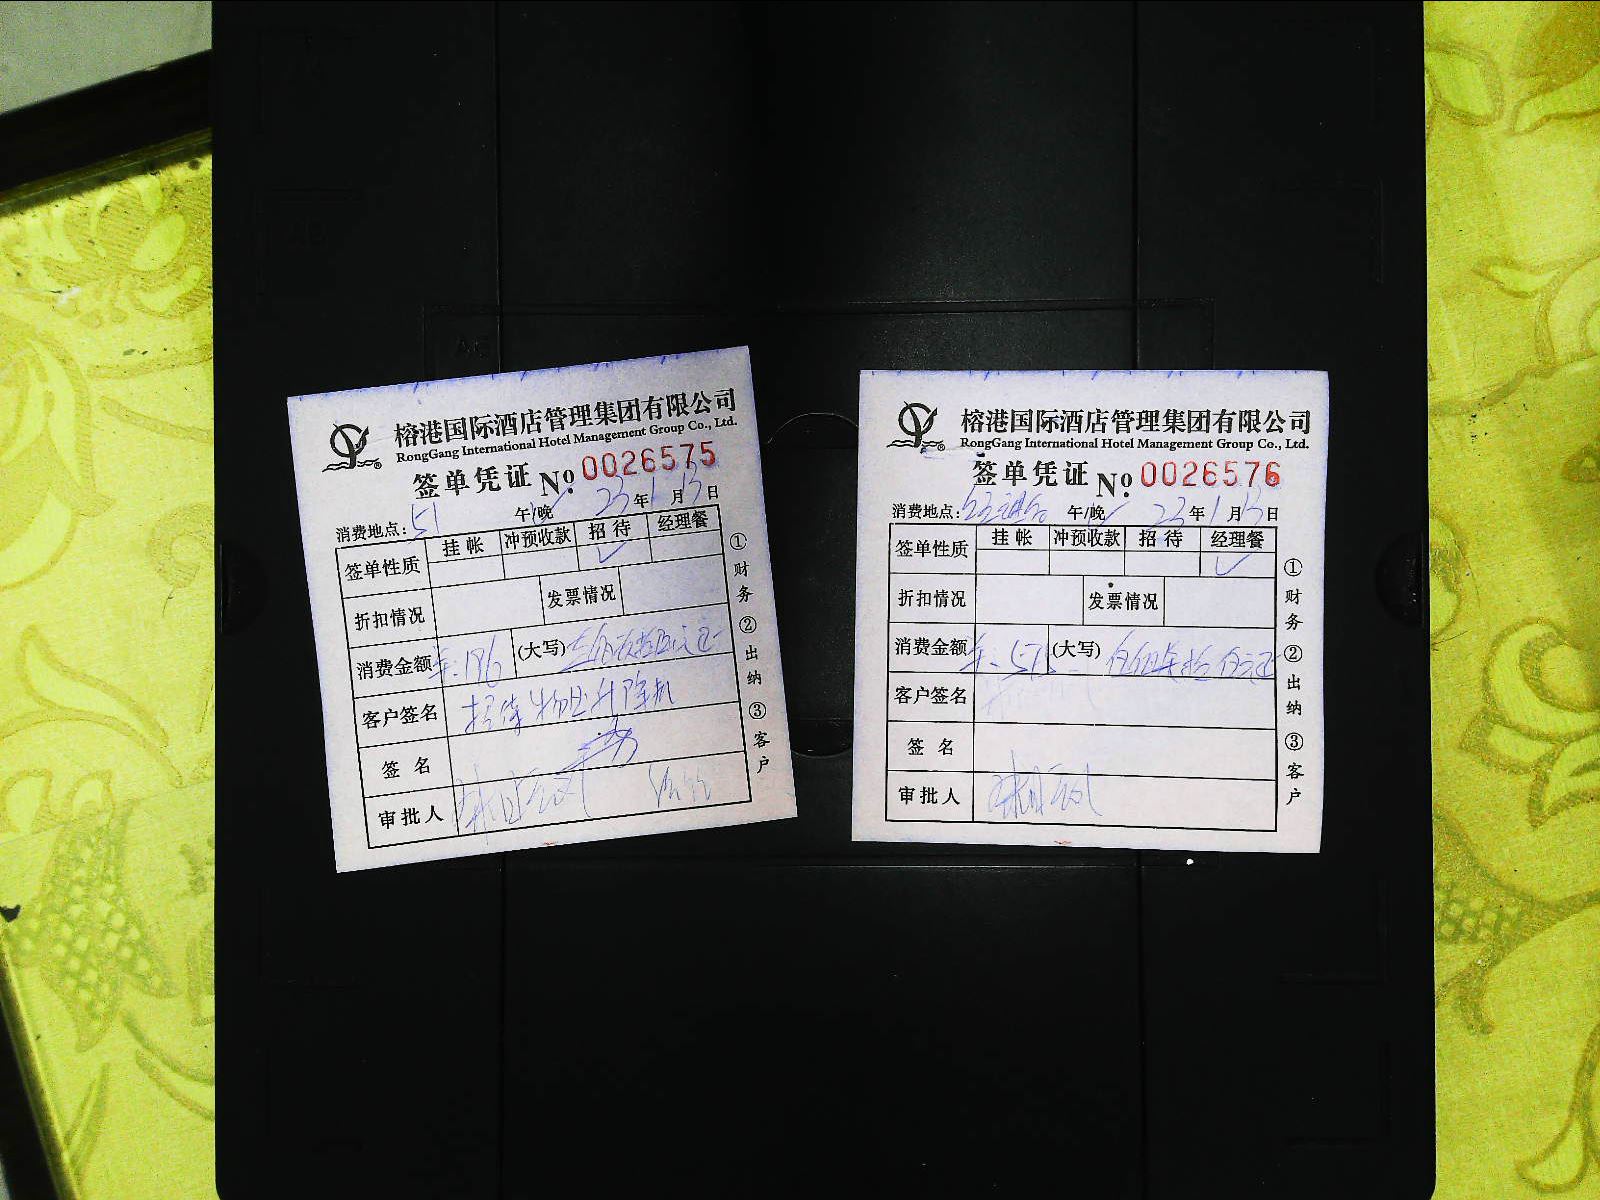 榕港国际酒店管理集团有限公司
RongGang International Hotel Management Group Co., Ltd.
签单凭证 No. 0026575
消费地点: 51 午/晚 23 年 1 月 13 日
签单性质 挂帐 冲预收款 招待 经理餐
折扣情况 发票情况
消费金额 196 (大写)
客户签名 招待 升降机
签名
审批人
①财务 ②出纳 ③客户
榕港国际酒店管理集团有限公司
RongGang International Hotel Management Group Co., Ltd.
签单凭证 No. 0026576
消费地点: 午/晚 23 年 1 月 13 日
签单性质 挂帐 冲预收款 招待 经理餐
折扣情况 发票情况
消费金额 (大写)
客户签名
签名
审批人
①财务 ②出纳 ③客户